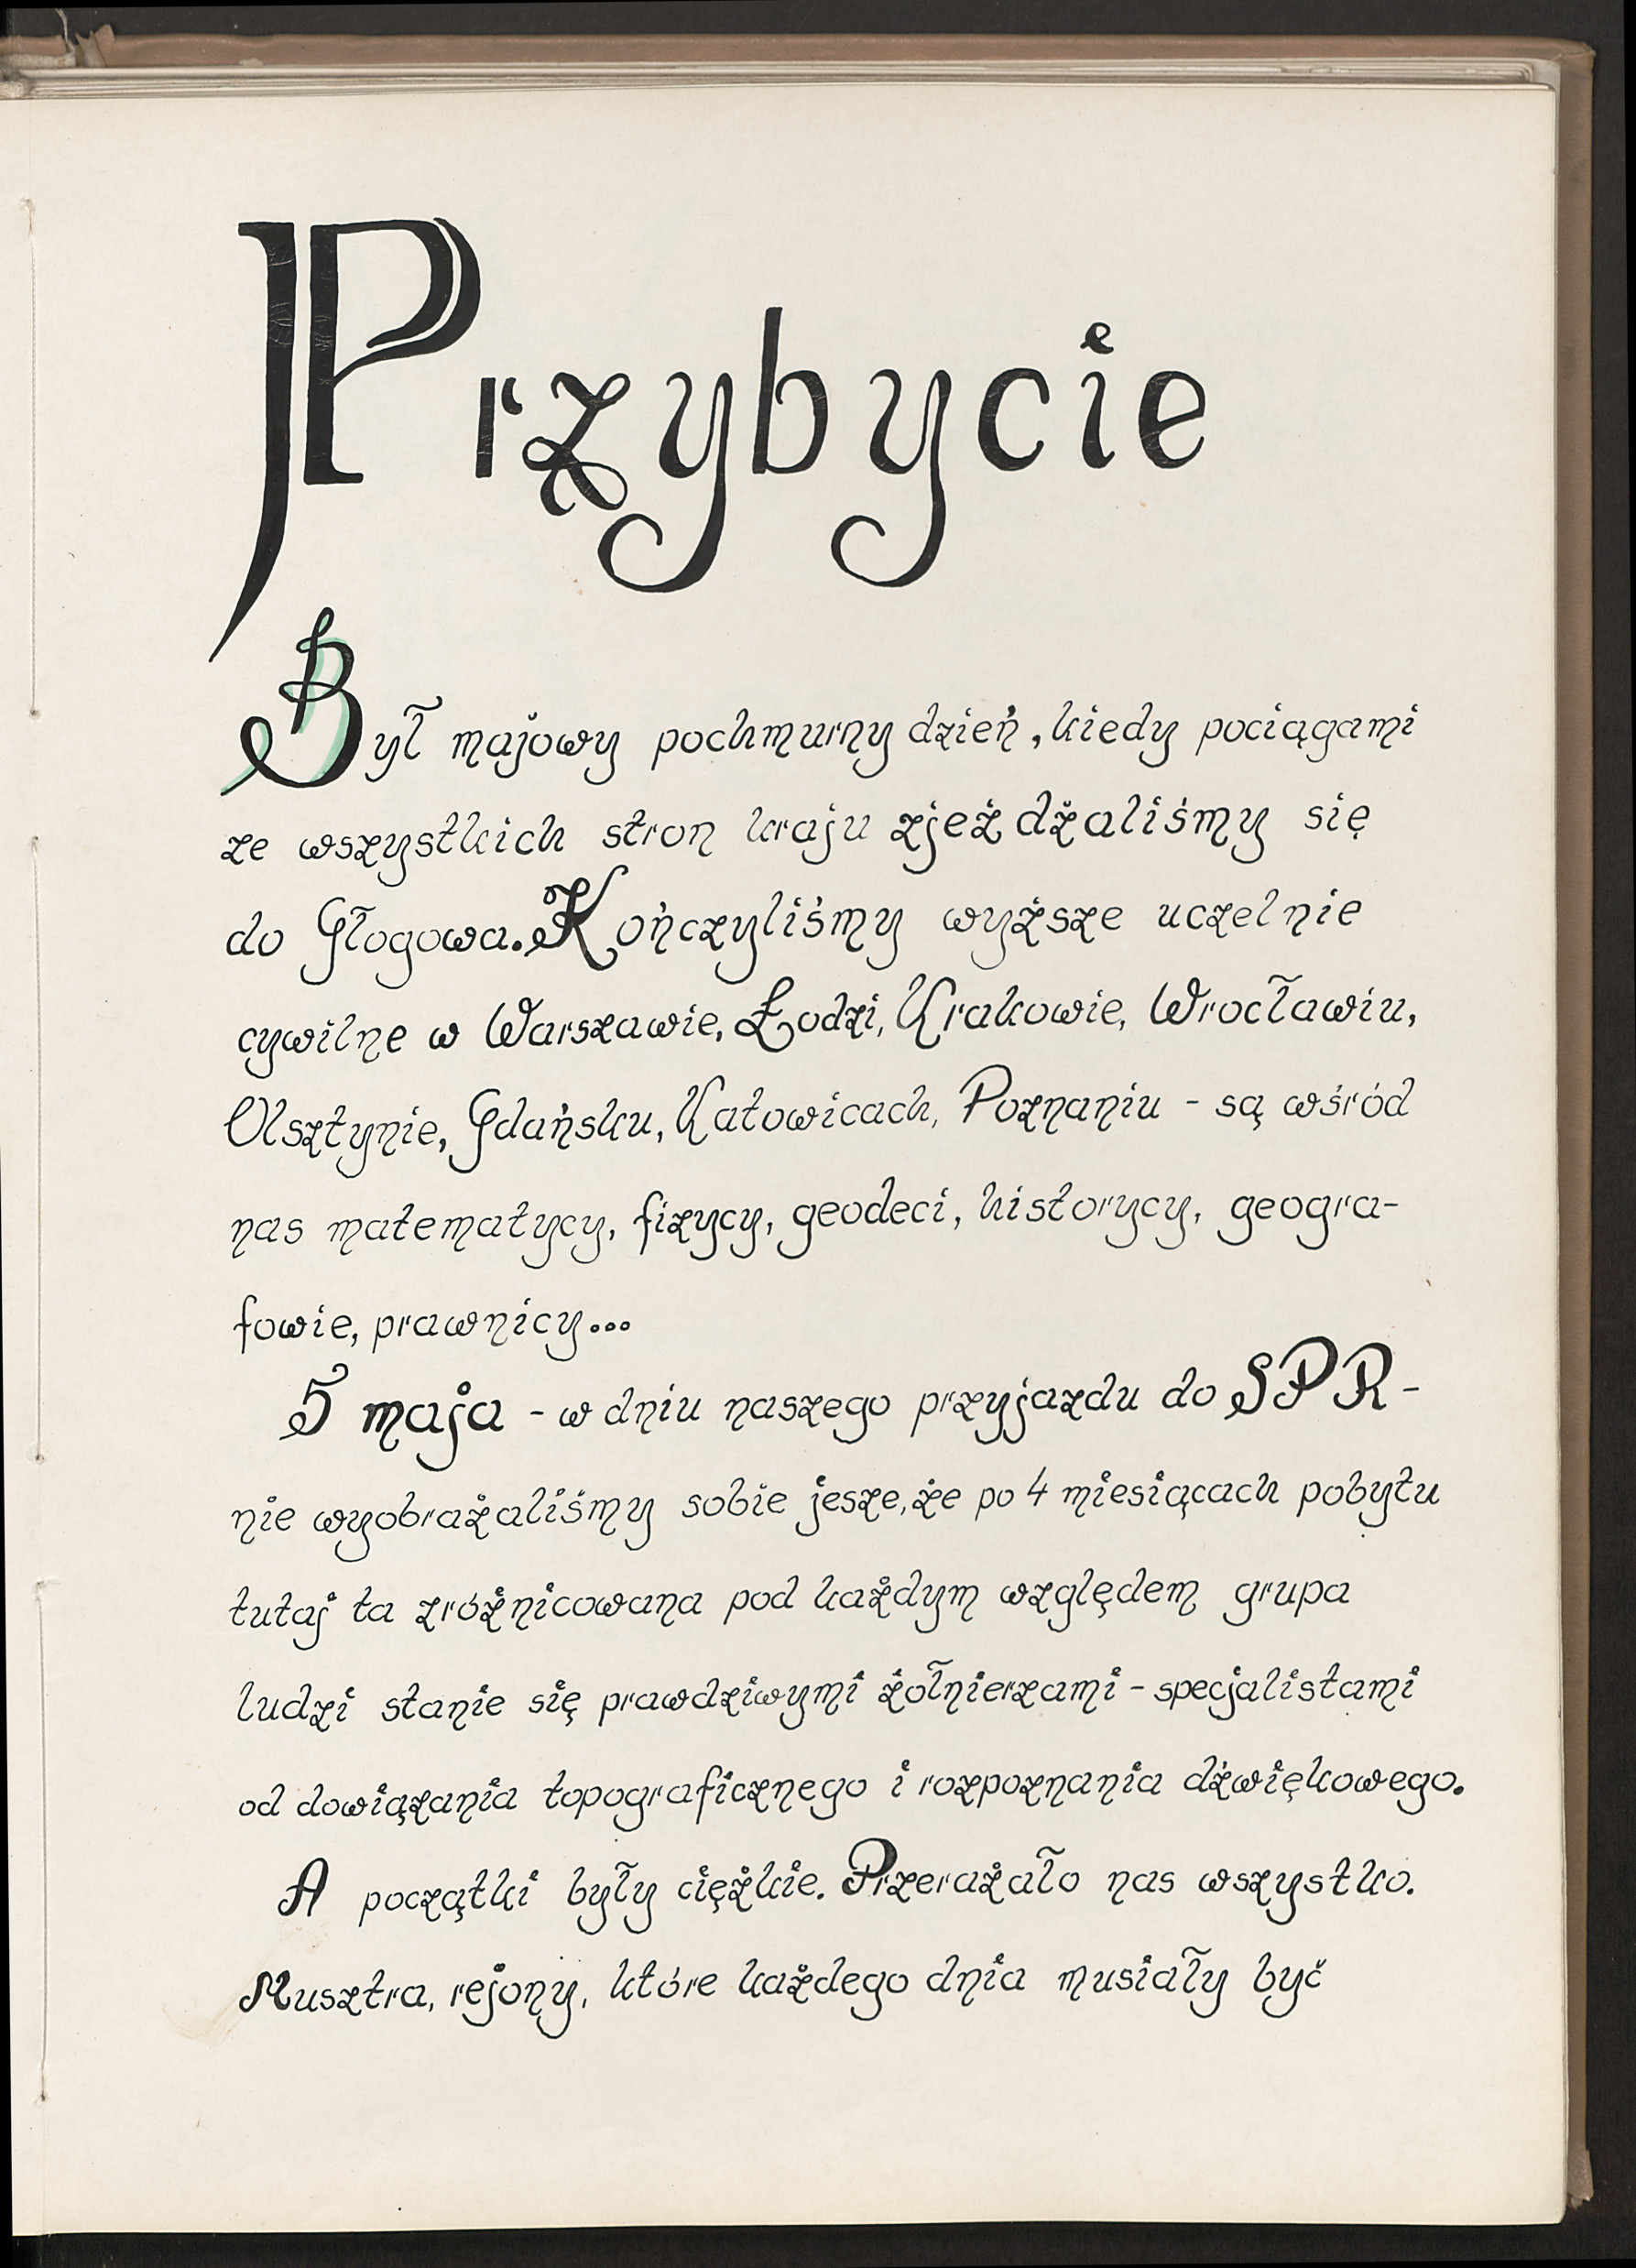 Przybycie
Był majowy pochmurny dzień, kiedy pociągami
ze wszystkich stron kraju zjeżdżaliśmy się
do Głogowa. Kończyliśmy wyższe uczelnie
cywilne w Warszawie, Łodzi, Krakowie, Wrocławiu,
Olsztynie, Gdańsku, Katowicach, Poznaniu - są wśród
nas matematycy, fizycy, geodeci, historycy, geogra-
fowie, prawnicy...
5 maja - w dniu naszego przyjazdu do SPR -
nie wyobrażaliśmy sobie jesze, że po 4 miesiącach pobytu
tutaj ta zróżnicowana pod każdym względem grupa
ludzi stanie się prawdziwymi żołnierzami - specjalistami
od dowiązania topograficznego i rozpoznania dźwiękowego.
A początki były ciężkie. Przerażało nas wszystko.
Musztra, rejony, które każdego dnia musiały być